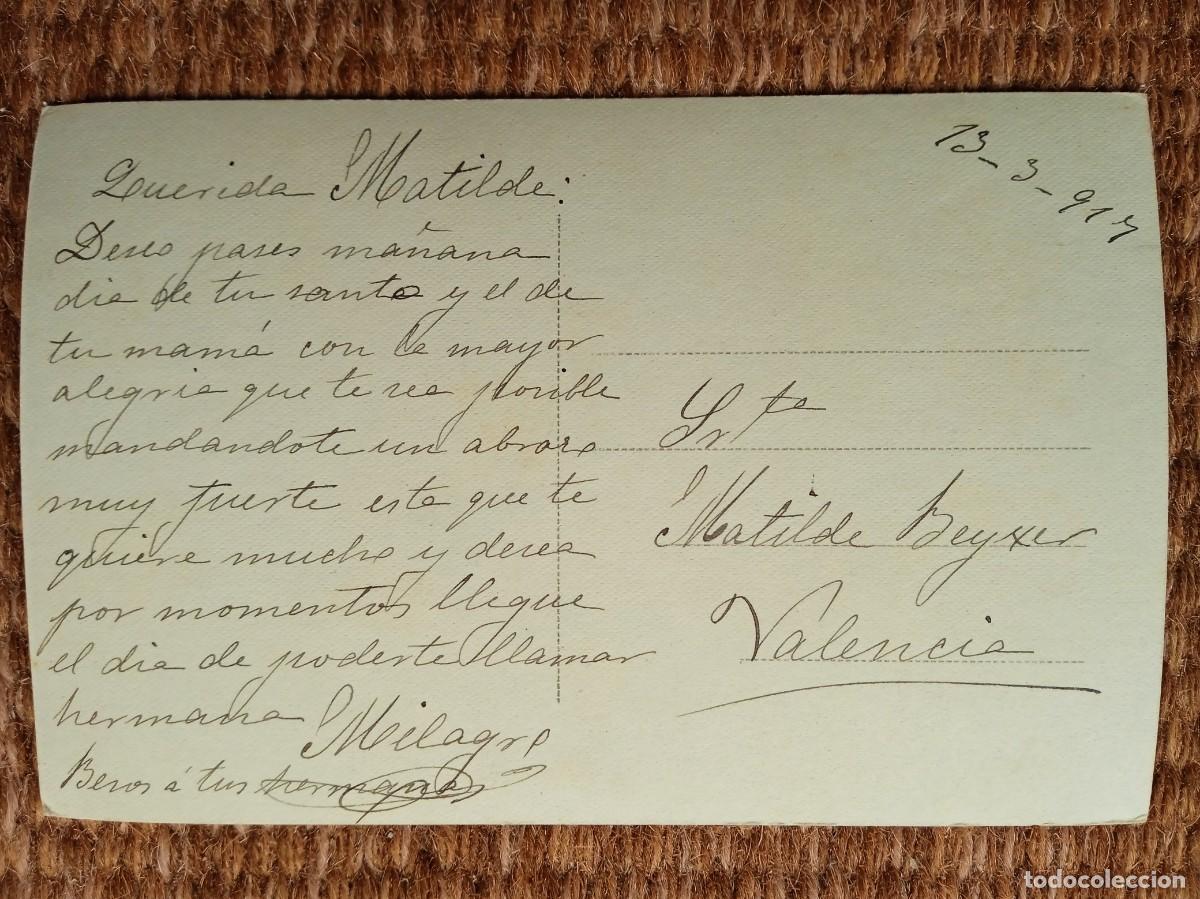 13-3-917
Querida Matilde:
Deseo pases mañana
dia de tu santo y el de
tu mamá con la mayor
alegria que te sea posible
mandandote un abrazo
muy fuerte esta que te
quiere mucho y desea
por momentos llegue
el dia de poderte llamar
hermana Milagro
Besos á tus hermanas
Srta
Matilde Beyxer
Valencia
todocoleccion